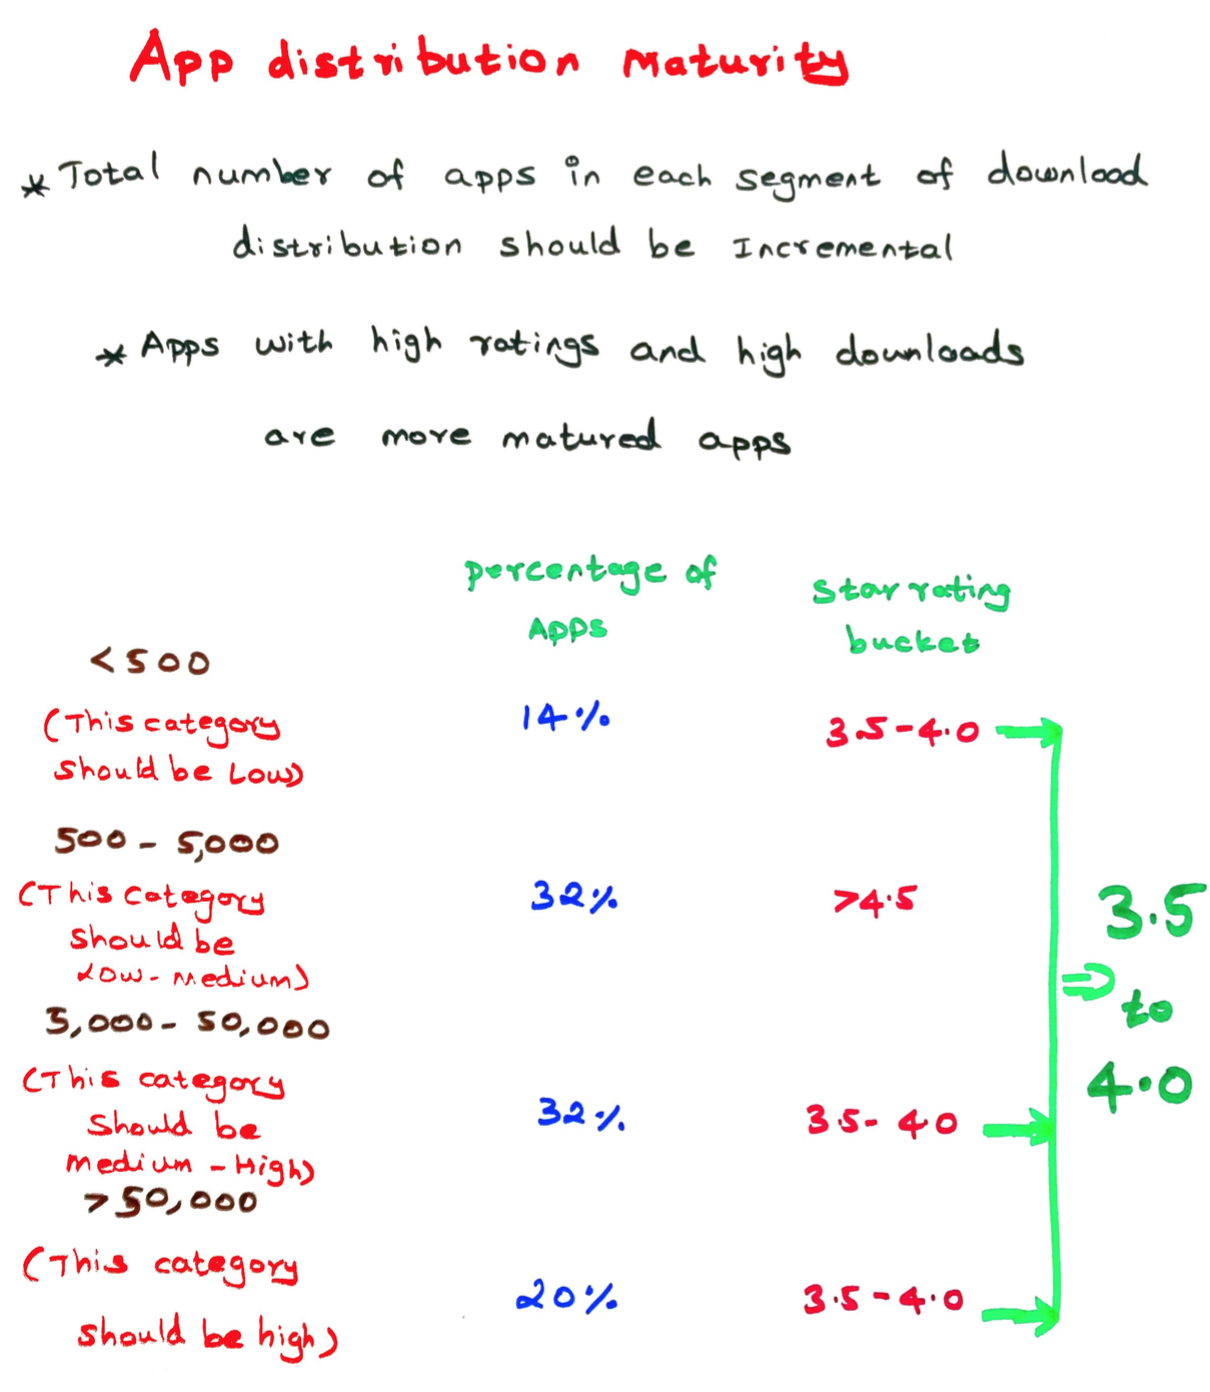 App distribution Maturity
* Total number of apps in each segment of download
distribution should be Incremental
* Apps with high ratings and high downloads
are more matured apps
percentage of
Apps
Star rating
bucket
<500
(This category
should be Low)
14%
3.5-4.0
500 - 5,000
(This category
should be
Low-Medium)
32%
>4.5
5,000 - 50,000
(This category
should be
medium - High)
32%
3.5- 4.0
>50,000
(This category
should be high)
20%
3.5 - 4.0
⇒ 3.5
to
4.0